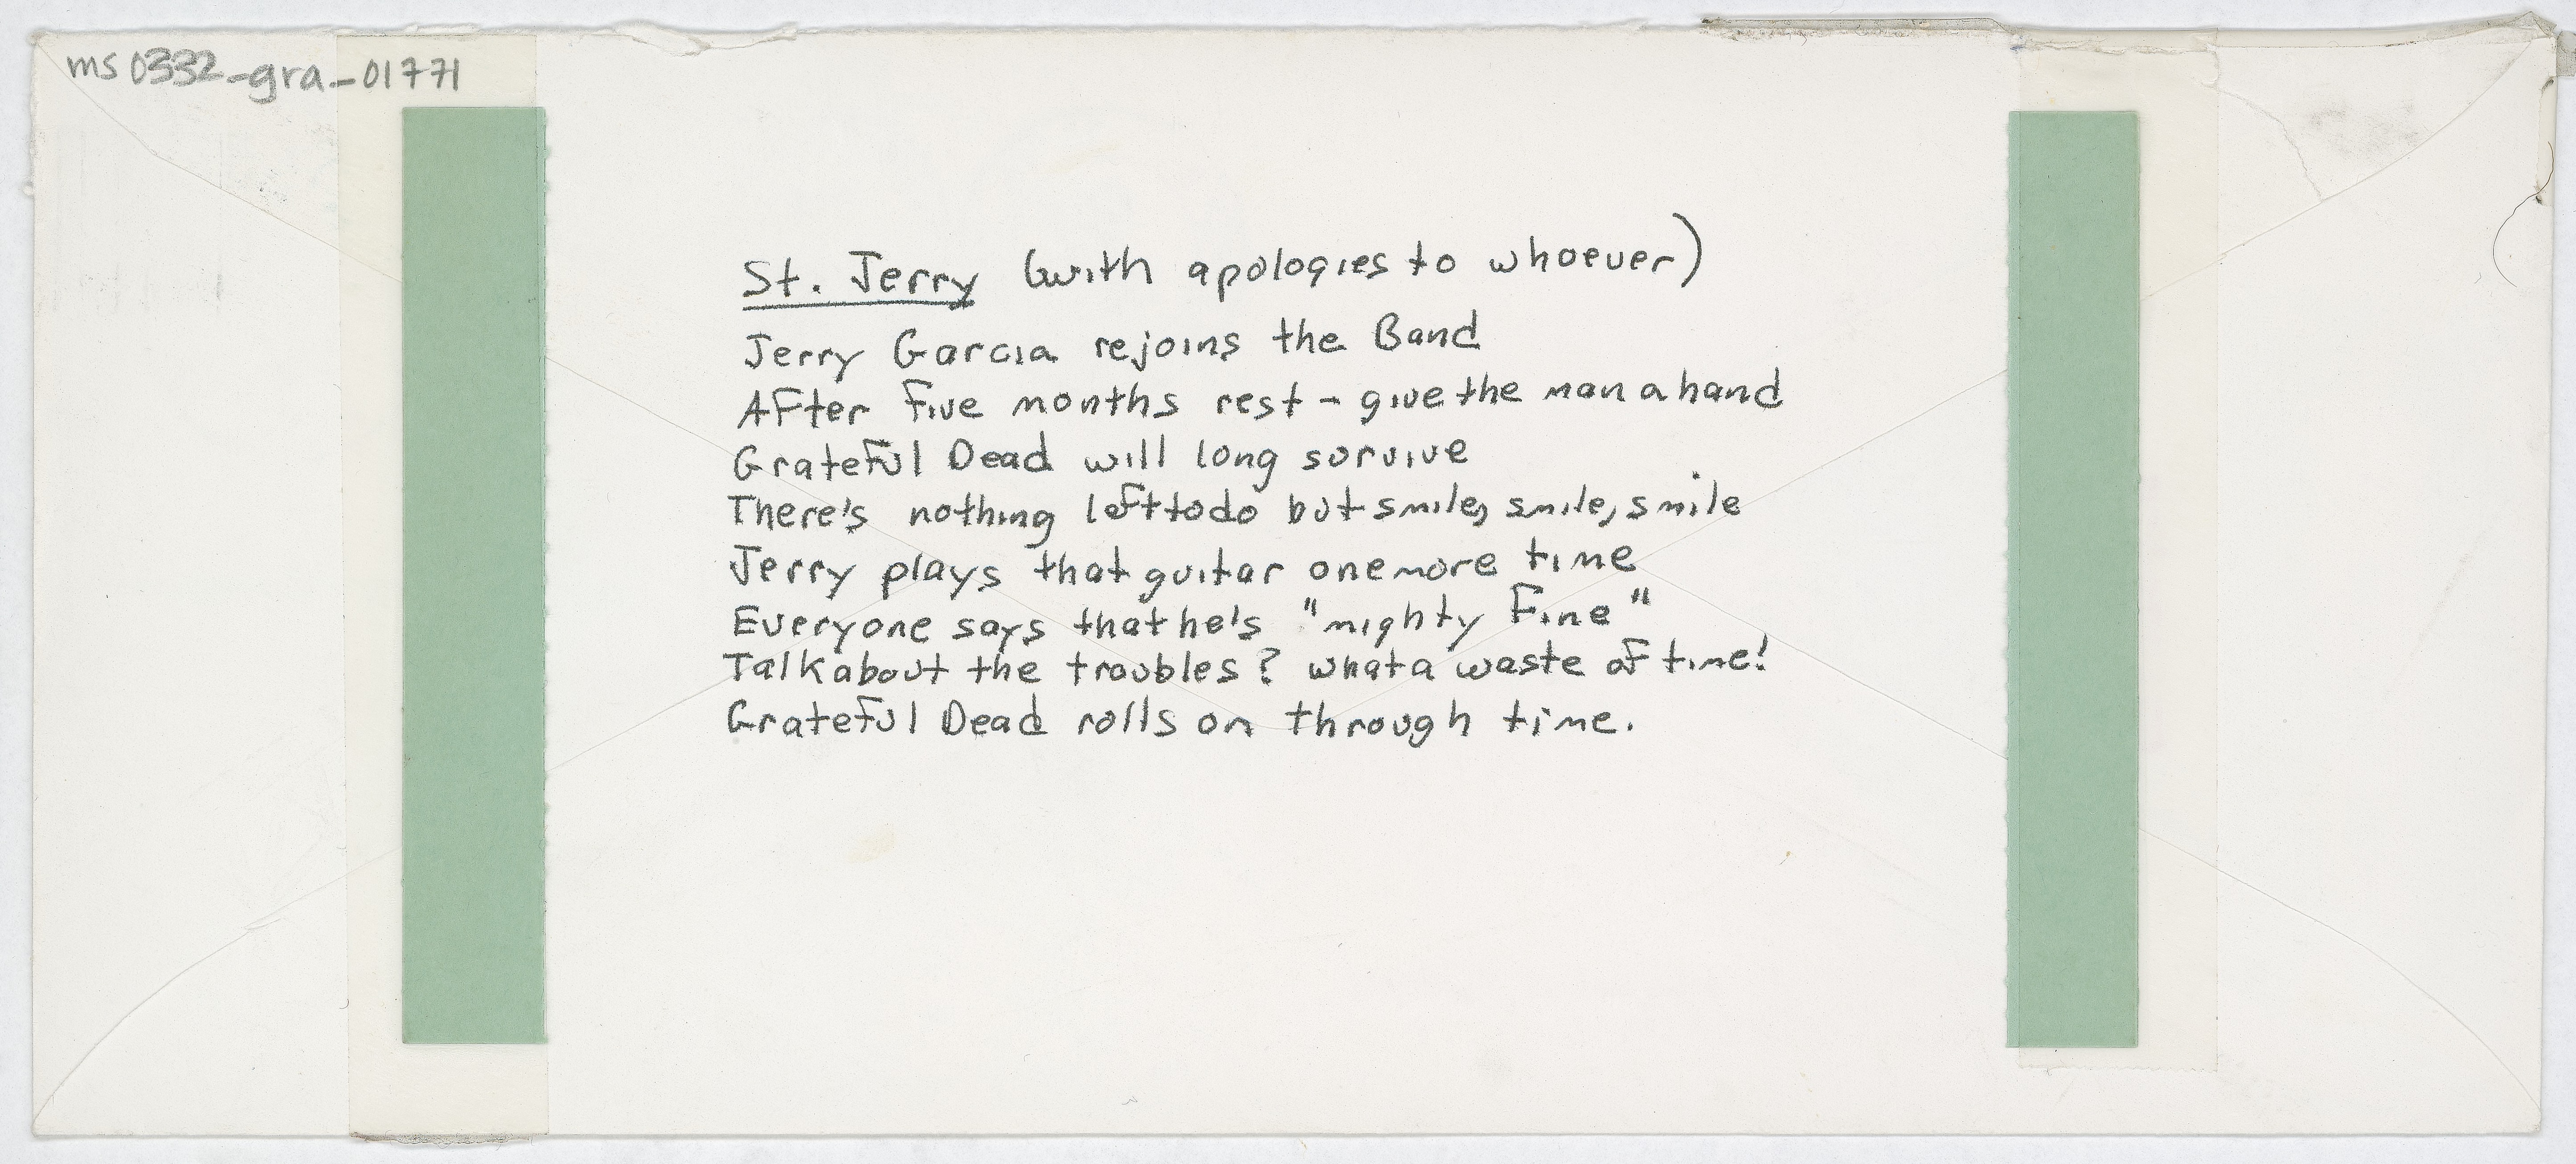 ms0332_gra_01771
St. Jerry (with apologies to whoever)
Jerry Garcia rejoins the Band
After five months rest - give the man a hand
Grateful Dead will long survive
There's nothing left to do but smile, smile, smile
Jerry plays that guitar one more time
Everyone says that he's "mighty Fine"
Talk about the troubles? what a waste of time!
Grateful Dead rolls on through time.